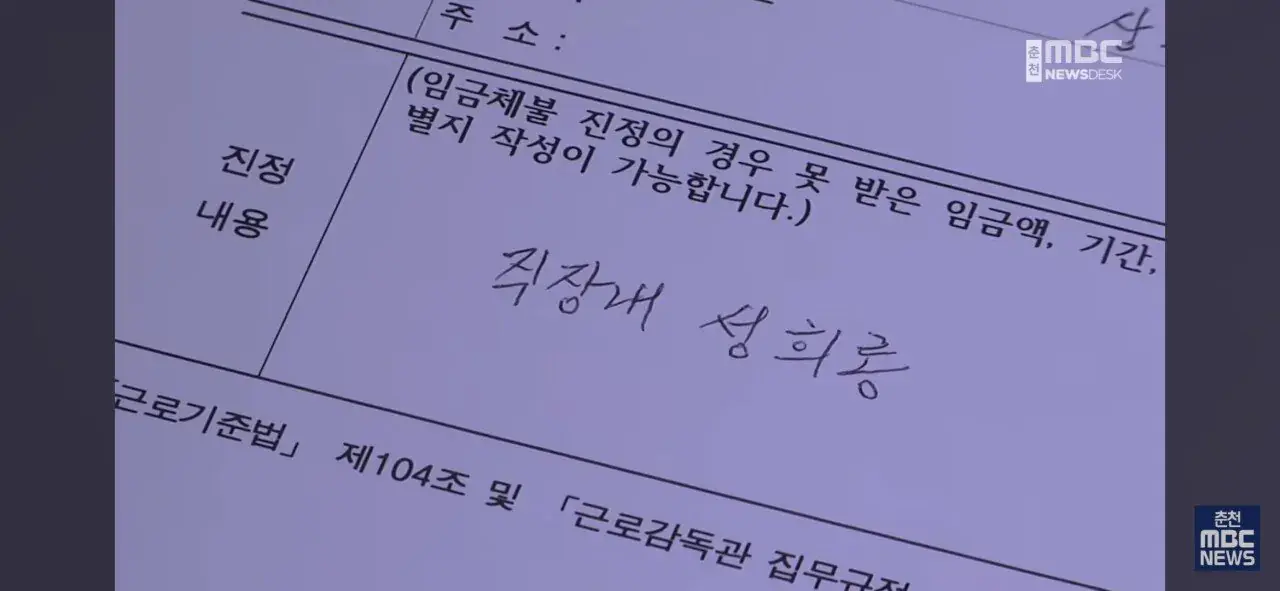 주 소 :
춘천 MBC
NEWSDESK
(임금체불 진정의 경우 못 받은 임금액, 기간,
별지 작성이 가능합니다.)
진정
내용
직장내 성희롱
「근로기준법」 제104조 및 「근로감독관 집무규정
춘천
MBC
NEWS